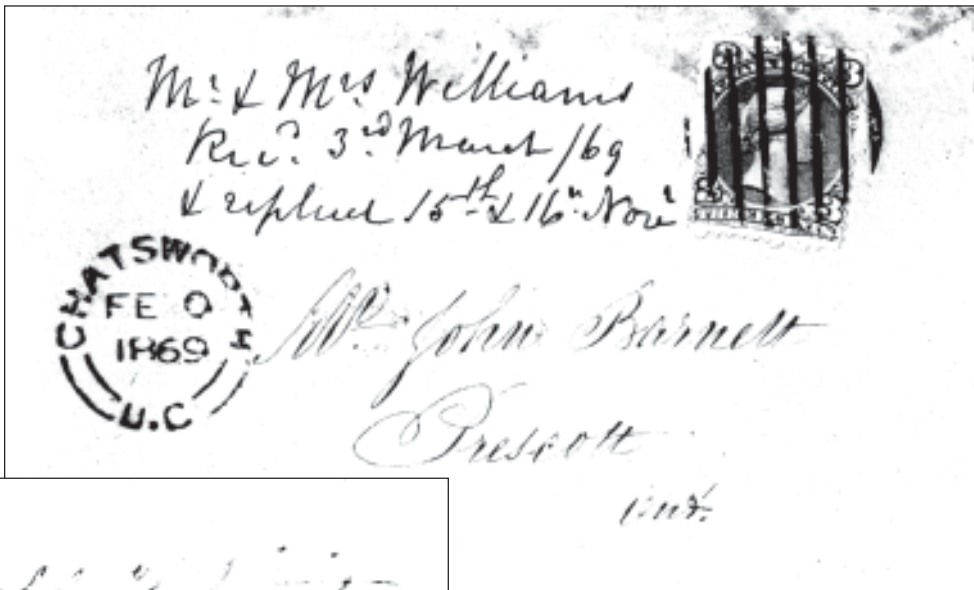 Mr & Mrs Williams
Rec.d 3rd March /69
& replied 15th & 16th Novr
CHATSWORTH
FE 0
1869
U.C
Mr. John Barnett
Prescott
Ont.